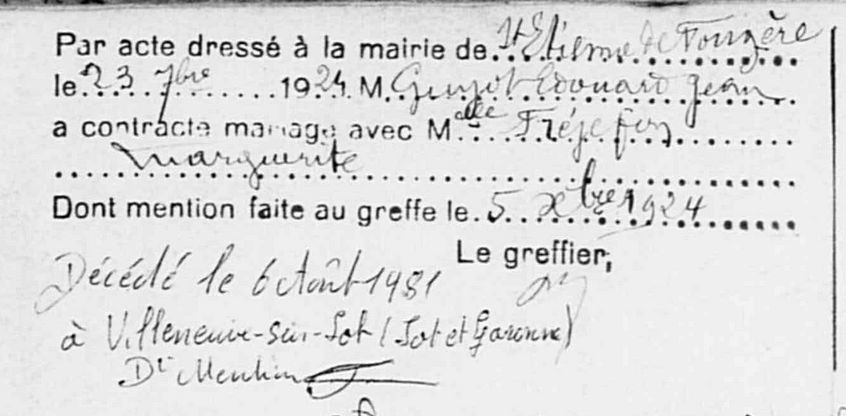 Par acte dressé à la mairie de St Etienne de Fougère
le 23 7bre 1924 M. Guyot Edouard Jean
a contracté mariage avec Melle
Marguerite
Dont mention faite au greffe le 5 Xbre 1924
Le greffier,
Décédé le 6 Août 1981
à Villeneuve-sur-Lot (Lot et Garonne)
Dt Mention